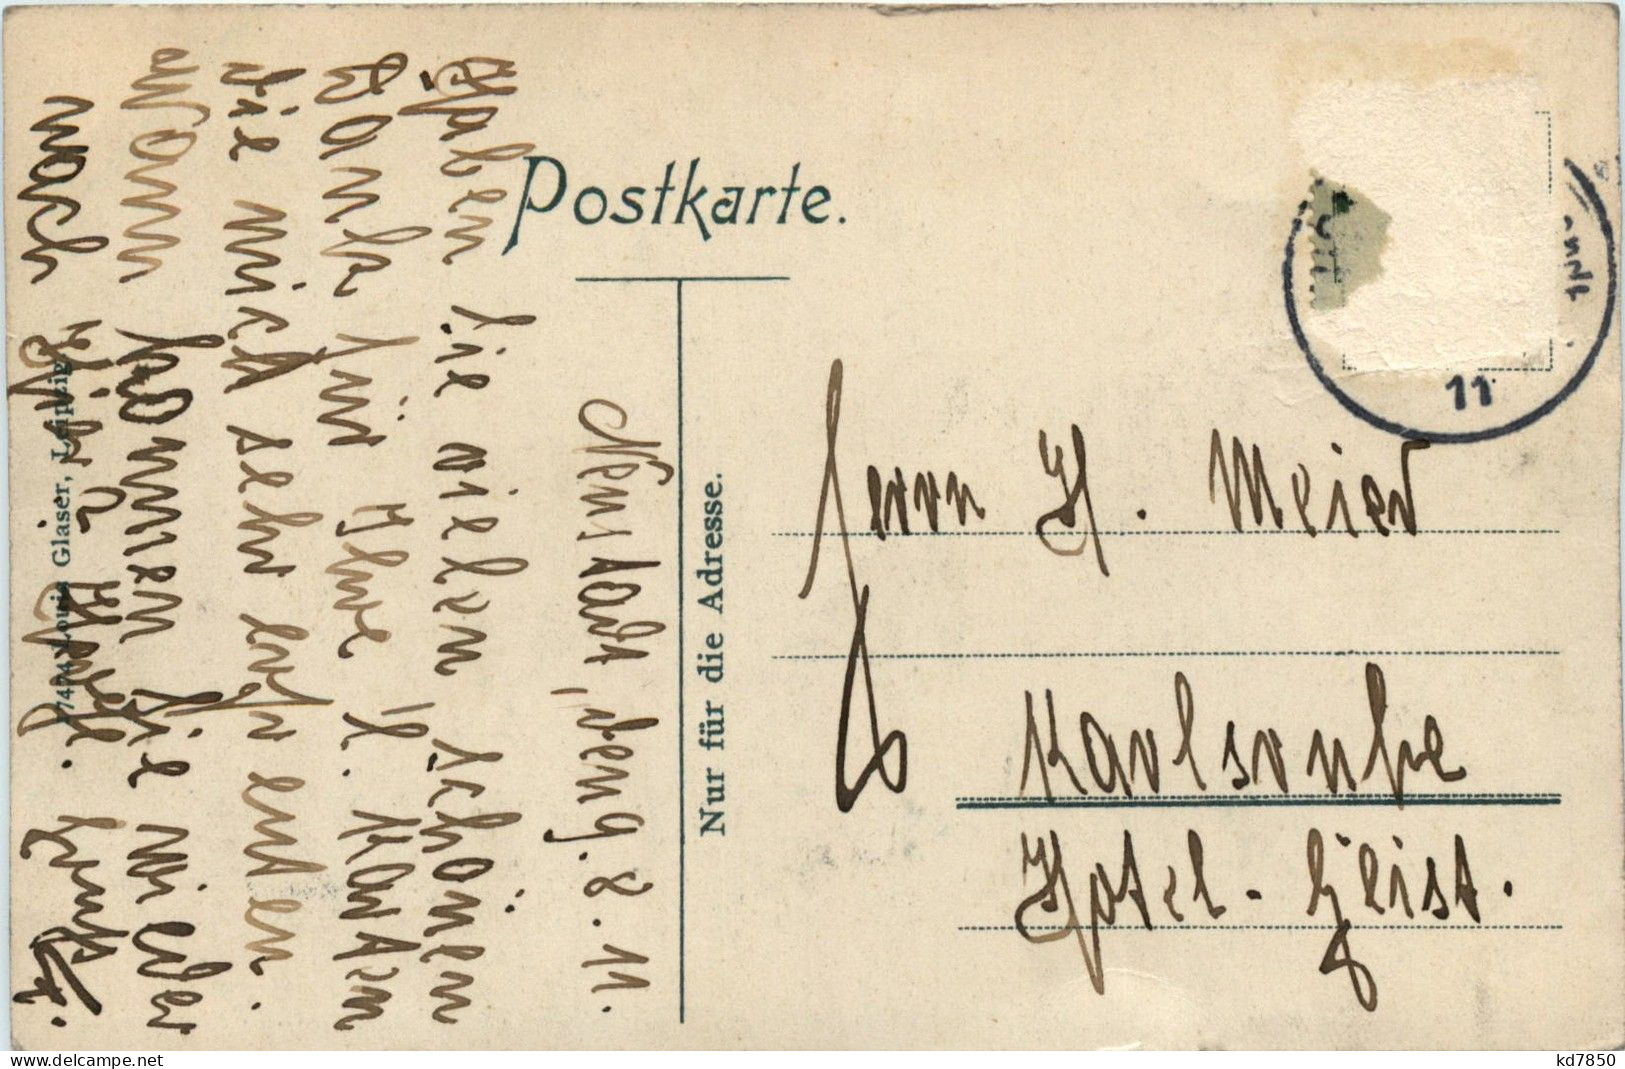 Postkarte.
Nur für die Adresse.
11
Herrn H. Meier
Karlsruhe
Hotel-Geist.
Neustadt, den 9.8.11.
Haben Sie vielen schönen
Dank für Ihre Karten
die mich sehr erfreuten.
Wann kommen Sie wieder
nach Grüßt
Louis Glaser, Leipzig
kd7850